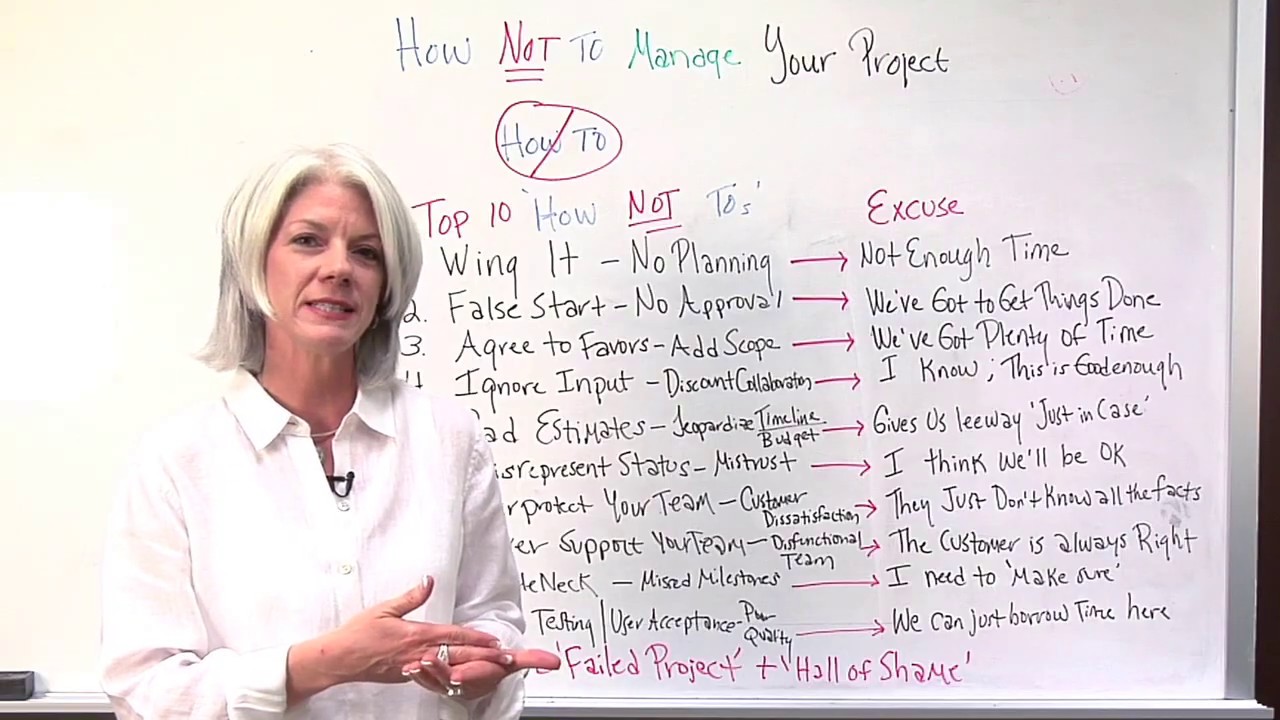 How NOT To Manage Your Project
How To
Top 10 'How NOT To's' Excuse
Wing It – No Planning → Not Enough Time
2. False Start – No Approval → We've Got to Get Things Done
3. Agree to Favors – Add Scope → We've Got Plenty of Time
4. Ignore Input – Discount Collaboration → I Know; This is Good enough
ad Estimates – Jeopardize Timeline Budget → Gives Us leeway 'Just in Case'
isrepresent Status – Mistrust → I think We'll be OK
rprotect Your Team – Customer Dissatisfaction → They Just Don't Know all the facts
er Support Your Team – Disfunctional Team → The Customer is always Right
leNeck – Missed Milestones → I need to 'Make sure'
Testing | User Acceptance – Poor Quality → We can just borrow Time here
'Failed Project' + 'Hall of Shame'